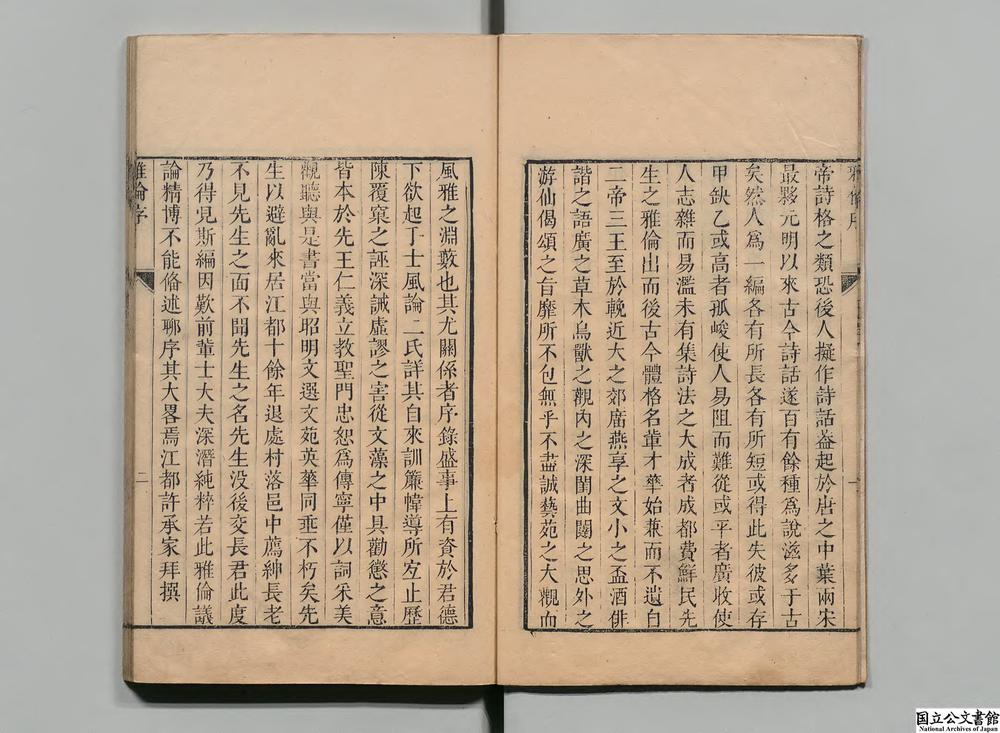 雅倫序
一
帝詩格之類恐後人擬作詩話葢起於唐之中葉兩宋
最夥元明以來古今詩話遂百有餘種爲說滋多于古
矣然人爲一編各有所長各有所短或得此失彼或存
甲缺乙或高者孤峻使人易阻而難從或平者廣收使
人志雜而易濫未有集詩法之大成者成都費鮮民先
生之雅倫出而後古今體格名軰才華始兼而不遺自
二帝三王至於輓近大之郊廟燕享之文小之盃酒俳
諧之語廣之草木鳥獸之觀內之深閨曲闥之思外之
游仙偈頌之旨靡所不包無乎不盡誠藝苑之大觀而
風雅之淵藪也其尤關係者序錄盛事上有資於君德
下欲起丁士風論二氏詳其自來訓簾幃導所宜止歷
陳覆窠之誣深誡虛謬之害從文藻之中具勸懲之意
皆本於先王仁義立教聖門忠恕爲傳寧僅以詞采美
觀聽與是書當與昭明文選文苑英華同垂不朽矣先
生以避亂來居江都十餘年退處村落邑中薦紳長老
不見先生之面不聞先生之名先生没後交長君此度
乃得見斯編因歎前軰士大夫深潛純粹若此雅倫議
論精博不能偹述聊序其大畧焉江都許承家拜撰
雅倫序
二
国立公文書館
National Archives of Japan